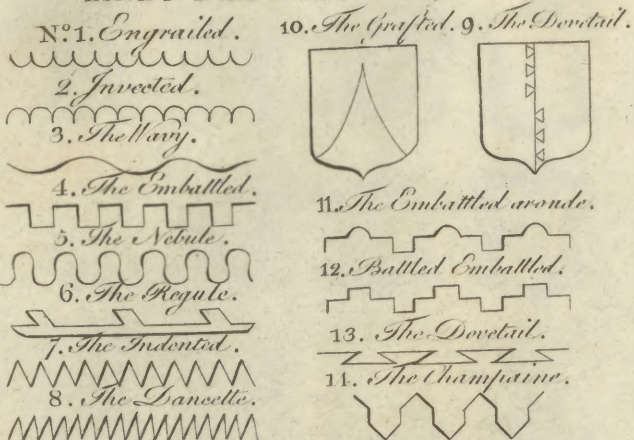 Nº1. Engrailed.
2. Invected.
3. The Wavy.
4. The Embattled.
5. The Nebule.
6. The Regule.
7. The Indented.
8. The Dancette.
10. The Grafted. 9. The Dovetail.
11. The Embattled aronde.
12. Battled Embattled.
13. The Dovetail.
14. The Champaine.